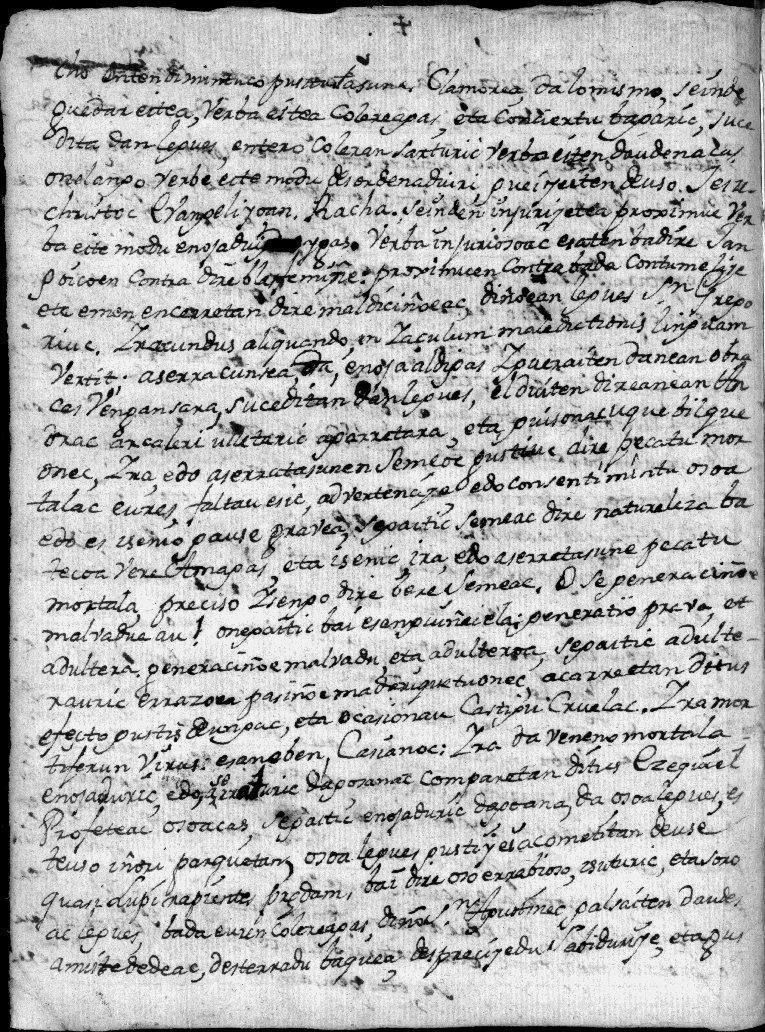 cho entendimintuco pustutasune. Clamorea da lo mismo, seinde
quedar eitea, Verba eitea Colereagas, eta Conciertu bagaric, suce
dita dan legues, entero Coleran sarturic verba eiten daudenac las
one lango verbe eite modu desordenaduiri pueiyeiten deuso. Jesu-
christoc Evangeliyoan. Racha. seinden injurijetea proximue Ver
ba eite modu enojadu ygas. Verba injuriosoac esaten badire San
goicoen Contra dire blasfemiñe: proximuen Contra bada Contumeliye
eta emen encerretan dire maldiciñoeac, diñoean legues Sn Grego
riuc. Iracundus aliquando, in Iaculum maledictionis linguam
Vertit: aserracunsea, da, enojaaldigas Zpueraiten danean obra
ces Vengansara, suceditan dan legues, elduiten direanean
orac arcaleri ulletaric aparretara, eta puisonac uque bijque
onec, Ira, edo aserratasunen Semeoc gustiuc dire pecatu mor
talac eures, faltau esic, advertencize edo consentimintu osoa
edo es isenic pause gravea, segaitic semeac dire naturaleza ba
tecoa Vere Amagas, eta isenic, ira, edo aserretasune pecatu
mortala preciso Isengo dire bere Semeac. O se generaciñoe
malvadue au! onegaitic bai esangeiñeiela: generatio prava, et
adultera. generaciñoe malvadu, eta adulterea, segaitic adulte-
rauric errazoea pasiñoe maderiquetuonec, acarreetan ditus
efecto gustiz deungac, eta ocasionau Castigu Cruelac. Ira mor
tiferun Virus: esan eben, Casianoc: Ira da veneno mortala
enojaduric, edo, se irauric dagosanac comparetan ditus Ezequiel
Profeteac osoacas, segaitic enojaduric dagoana, da osoa legues, es
teuso iñori parquetan, osoa legues gustiyes acometitan deuse
quasi lupi rapientes predam, bai dire oso errabioso, asuturic, eta soro
ac legues, bada euren Colereagas, diño Sn Agustinec palsaiten daude
amistededeac, desterradu baquea, despreciyedu Sabidurije, eta gus